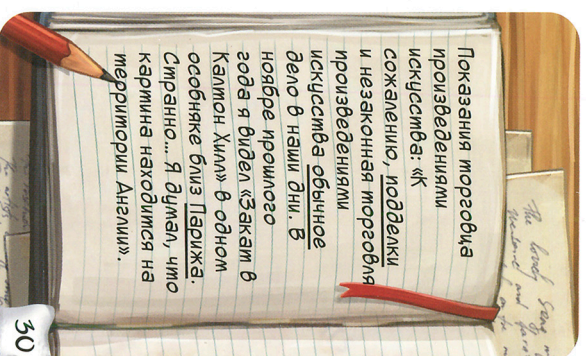 Показания торговца
произведениями
искусства: «К
сожалению, подделки
и незаконная торговля
произведениями
искусства обычное
дело в наши дни. В
ноябре прошлого
года я видел «Закат в
Калтон Хилл» в одном
особняке близ Парижа.
Странно... Я думал, что
картина находится на
территории Англии».
30
The lovely